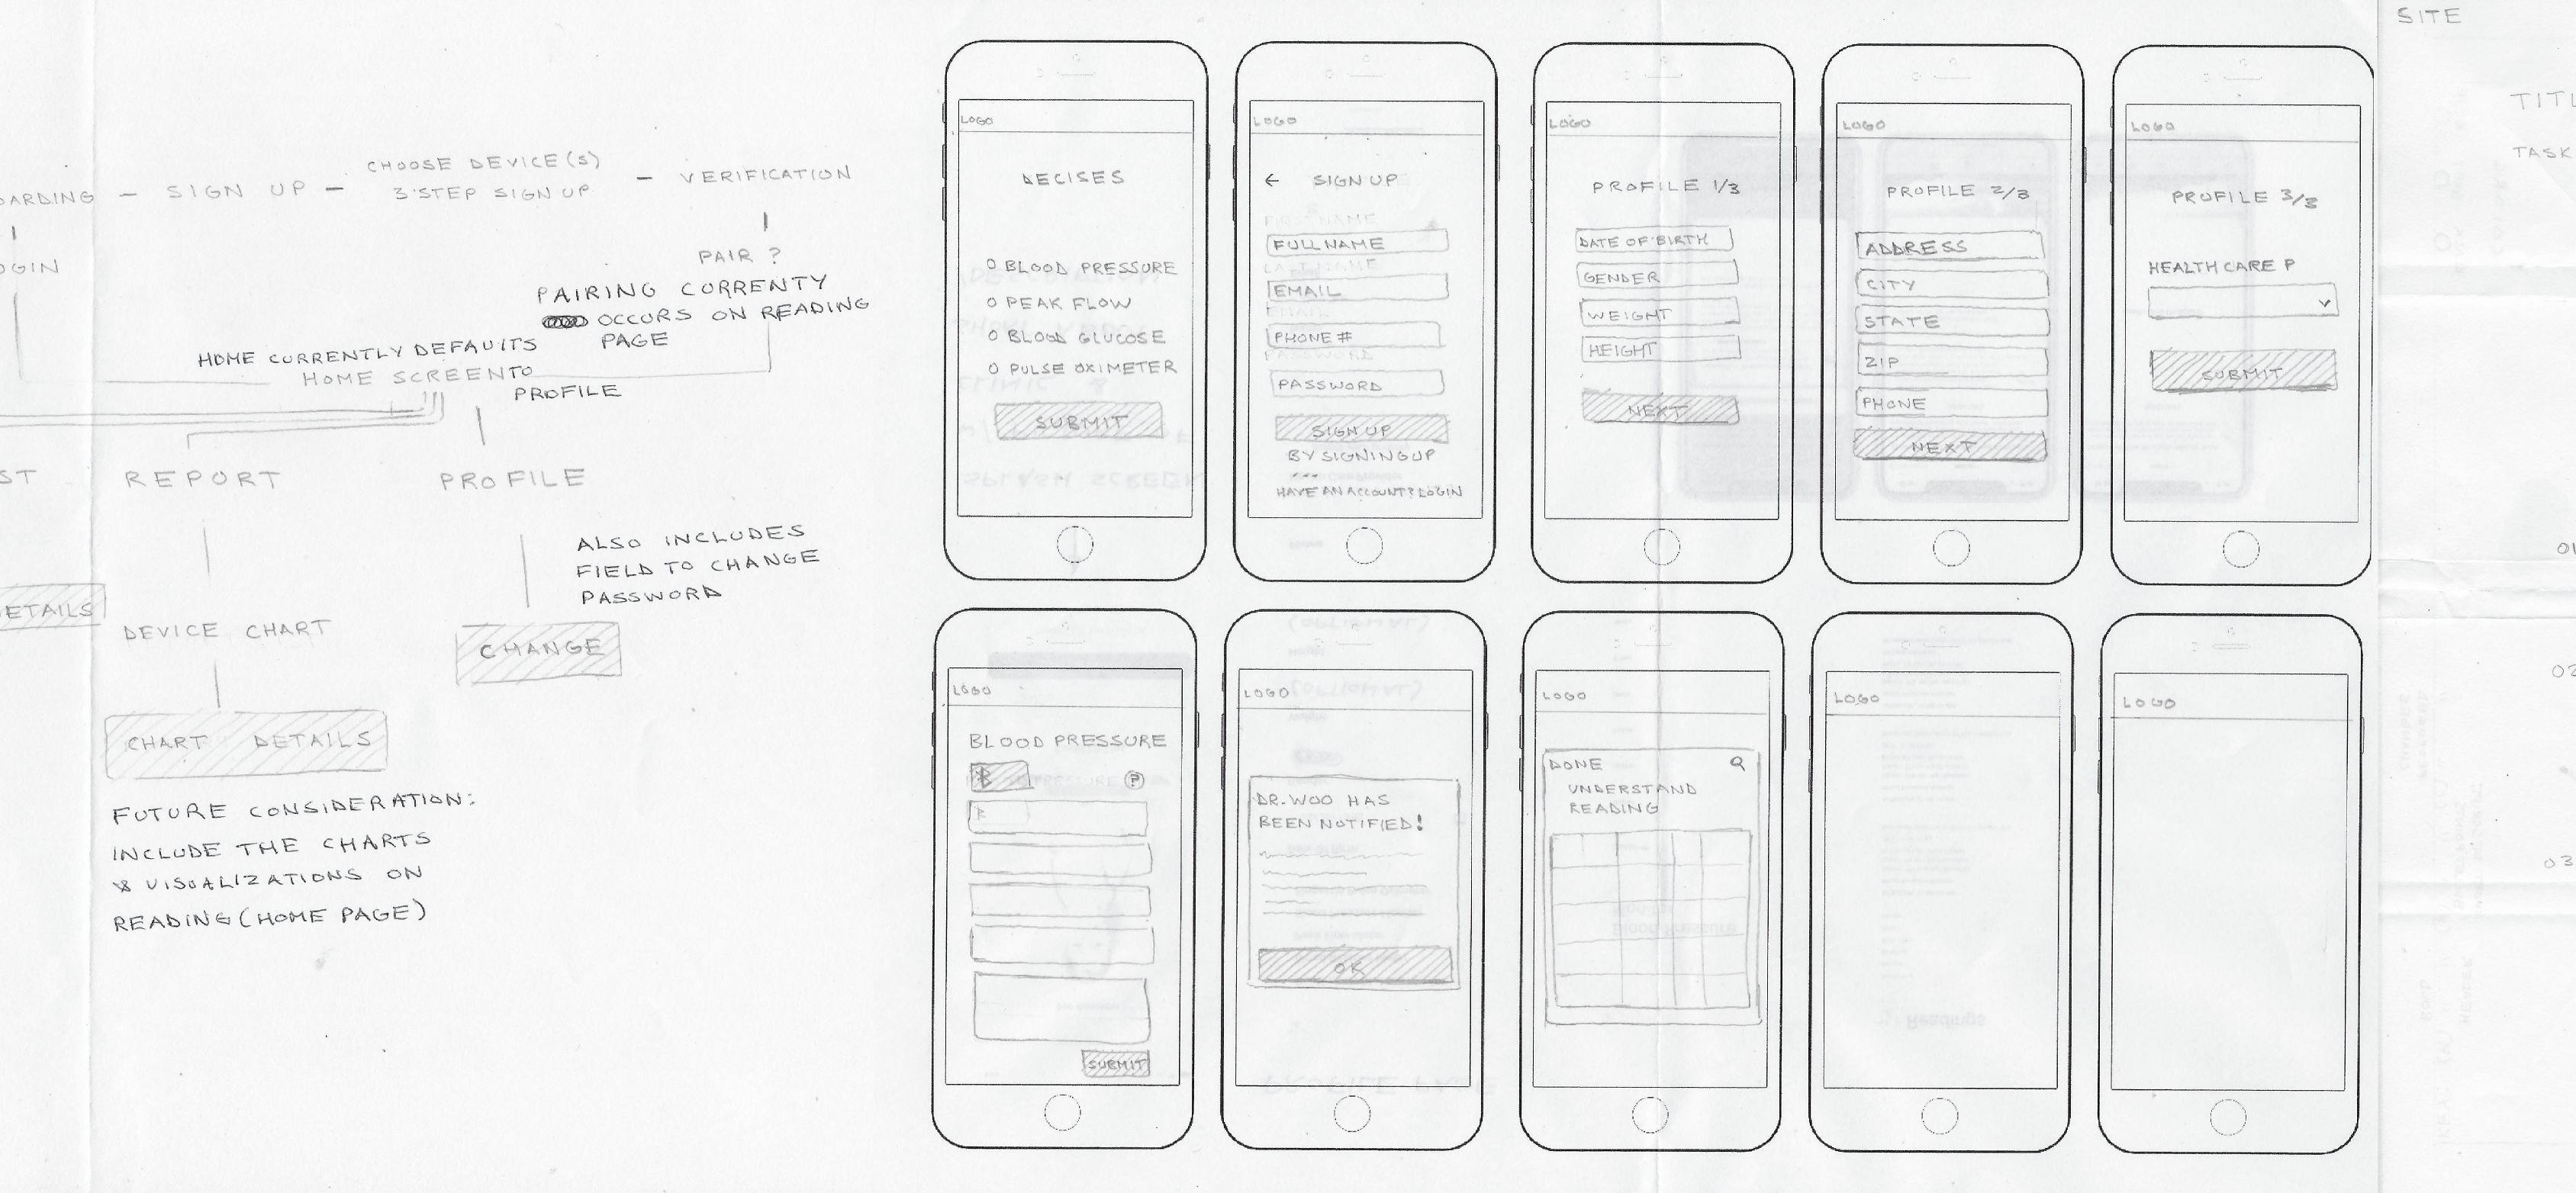 SIGN UP
CHOOSE DEVICE(S)
3 STEP SIGN UP
VERIFICATION
PAIR ?
PAIRING CURRENTY
OCCURS ON READING
PAGE
HOME CURRENTLY DEFAULTS
HOME SCREEN TO
PROFILE
REPORT
PROFILE
ALSO INCLUDES
FIELD TO CHANGE
PASSWORD
DEVICE CHART
CHANGE
CHART DETAILS
FUTURE CONSIDERATION:
INCLUDE THE CHARTS
& VISUALIZATIONS ON
READING (HOME PAGE)
LOGO
DECISES
O BLOOD PRESSURE
O PEAK FLOW
O BLOOD GLUCOSE
O PULSE OXIMETER
SUBMIT
LOGO
← SIGN UP
FULL NAME
EMAIL
PHONE #
PASSWORD
SIGN UP
BY SIGNING UP
HAVE AN ACCOUNT? LOGIN
LOGO
PROFILE 1/3
DATE OF BIRTH
GENDER
WEIGHT
HEIGHT
NEXT
LOGO
PROFILE 2/3
ADDRESS
CITY
STATE
ZIP
PHONE
NEXT
LOGO
PROFILE 3/3
HEALTH CARE P
SUBMIT
LOGO
BLOOD PRESSURE
?
SUBMIT
LOGO
DR. WOO HAS
BEEN NOTIFIED!
OK
LOGO
DONE
UNDERSTAND
READING
LOGO
LOGO
SITE
TASK
03